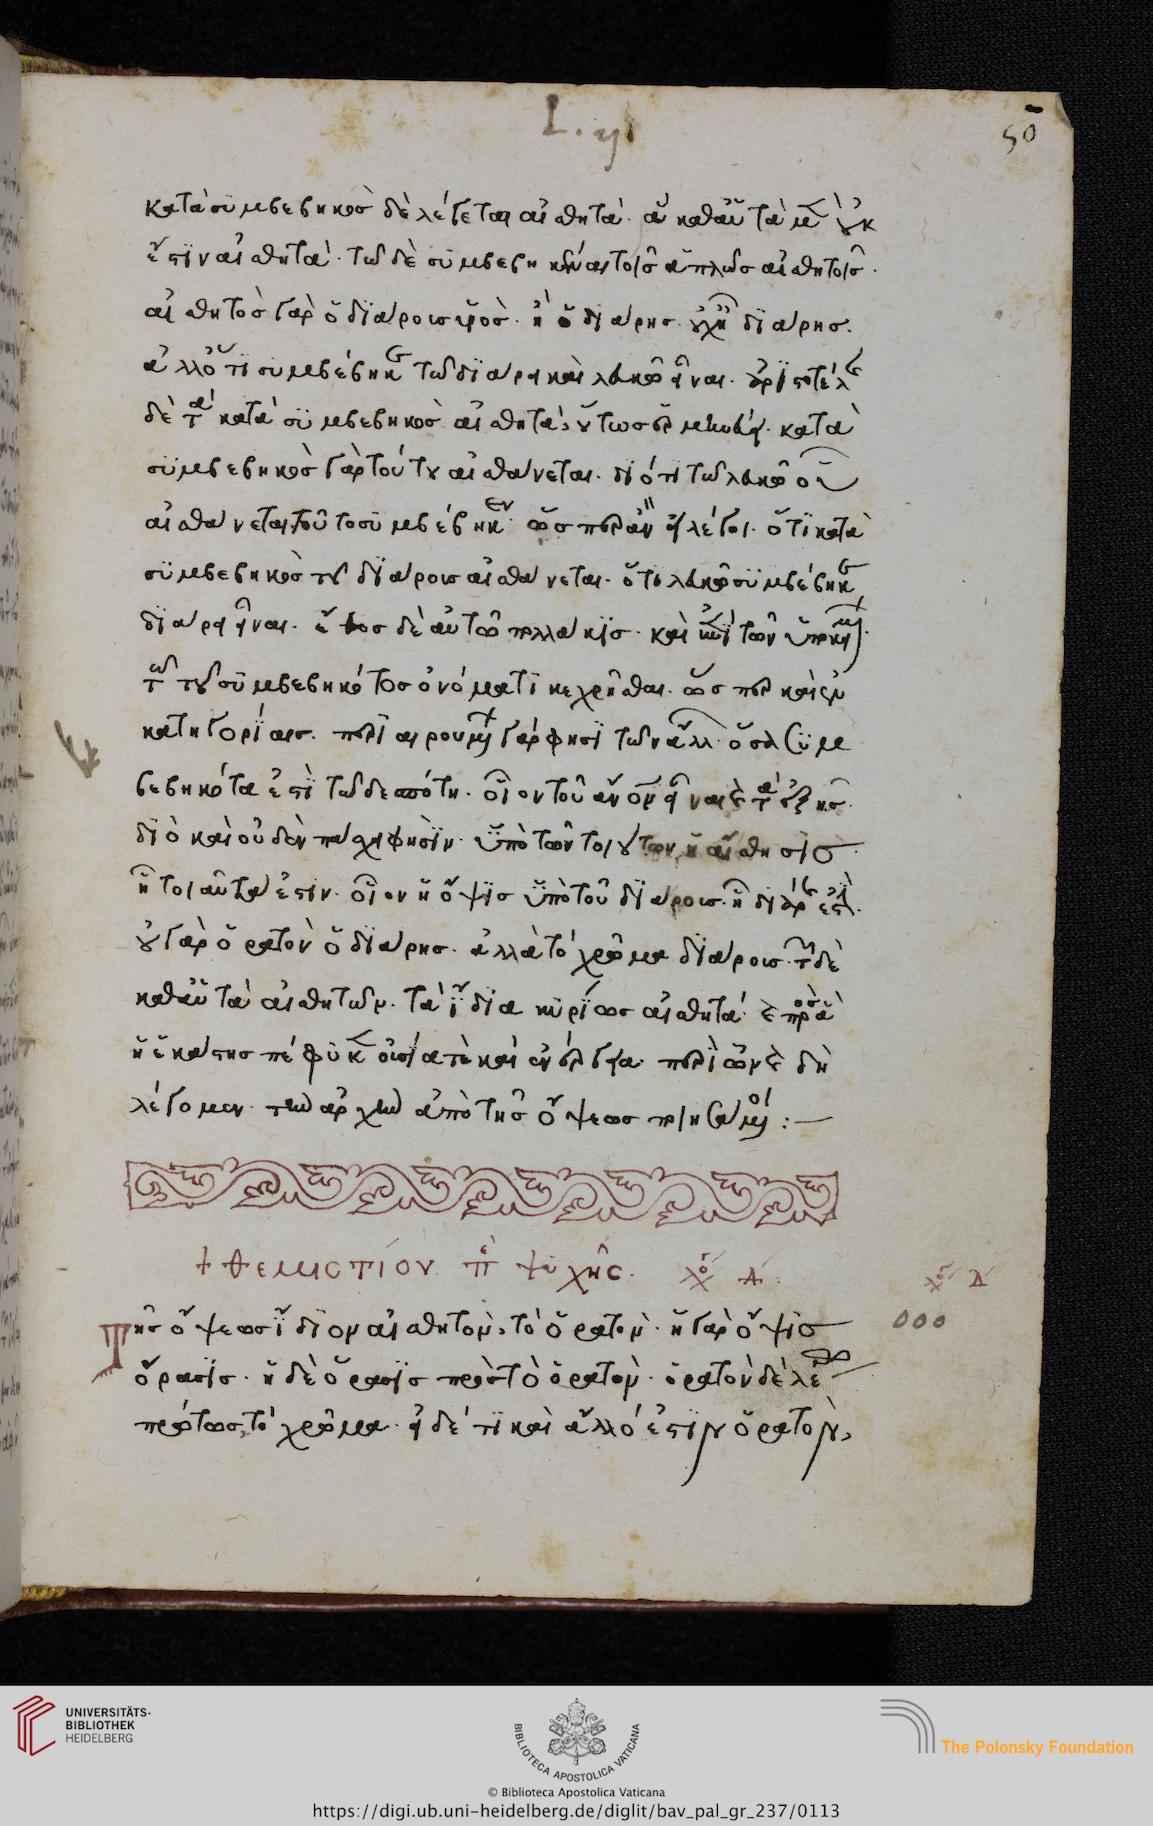 L. y
50
κατὰ συμβεβηκὸς δὲ λέγεται αἰσθητὰ· ἃ καθ' αὑτὰ μὲν οὐκ
ἔστιν αἰσθητά· τῶ δὲ συμβεβηκέναι τοῖς ἁπλῶς αἰσθητοῖς·
αἰσθητὸς γὰρ ὁ διάρους υἱὸς· ἢ ὁ διάρης· οὐχ ἧ διάρης·
ἀλλ' ὅτι συμβέβηκε τῶ διάρει καὶ λευκῶ εἶναι· ἀριστοτέλης
δὲ τὰ κατὰ συμβεβηκὸς αἰσθητά, οὕτως κατὰ
συμβεβηκὸς γὰρ τούτου αἰσθάνεται· διότι τῶ λευκῶ οὗ
αἰσθάνεται τοῦτο συμβέβηκεν· ὥσπερ ἂν εἰ λέγοι· ὅτι κατὰ
συμβεβηκὸς τοῦ διάρους αἰσθάνεται· ὅτι λευκῶ συμβέβηκε
διάρει εἶναι· ἔθος δὲ αὐτῶ πολλάκις· καὶ ἐπὶ τῶν ὑποκειμένων
τῶ τοῦ συμβεβηκότος ὀνόματι κεχρῆσθαι· ὥσπερ καὶ ἐν
κατηγορίαις· περιαιρουμένων γάρ φησι τῶν ἄλλων ὅσα συμ
βεβηκότα ἐπὶ τῶ δεσπότη· οἷον τοῦ ἄνον εἶναι καὶ τὰ ἑξῆς·
διὸ καὶ οὐδὲν πάσχει φησὶν· ὑπὸ τῶν τοιούτων ἡ αἴσθησις
ἧ τοιαῦτά ἐστιν· οἷον ἡ ὄψις ὑπὸ τοῦ διάρους· ἧ διάρης ἐστὶ·
οὐ γὰρ ὁρατὸν ὁ διάρης· ἀλλὰ τὸ χρῶμα διάρους· τῶν δὲ
καθ' αὑτὰ αἰσθητῶν· τὰ ἴδια κυρίως αἰσθητά· καὶ πρὸς ἃ
ἡ ἑκάστης πέφυκεν οὐσία τὲ καὶ ἐνέργεια· περὶ ὧν καὶ δὴ
λέγομεν· τὴν ἀρχὴν ἀπὸ τῆς ὄψεως ποιησάμενοι :—
+ θεμιστίου περὶ ψυχῆς. λόγος Δ.
λόγος Δ
Τῆς ὄψεως ἴδιον αἰσθητὸν, τὸ ὁρατὸν· ἡ γὰρ ὄψις
ὅρασις· ἡ δὲ ὅρασις πρὸς τὸ ὁρατὸν· ὁρατὸν δὲ λέγεται
πρώτως τὸ χρῶμα· εἰ δέ τι καὶ ἄλλό ἐστιν ὁρατὸν,
UNIVERSITÄTS-
BIBLIOTHEK
HEIDELBERG
BIBLIOTECA APOSTOLICA VATICANA
The Polonsky Foundation
© Biblioteca Apostolica Vaticana
https://digi.ub.uni-heidelberg.de/diglit/bav_pal_gr_237/0113